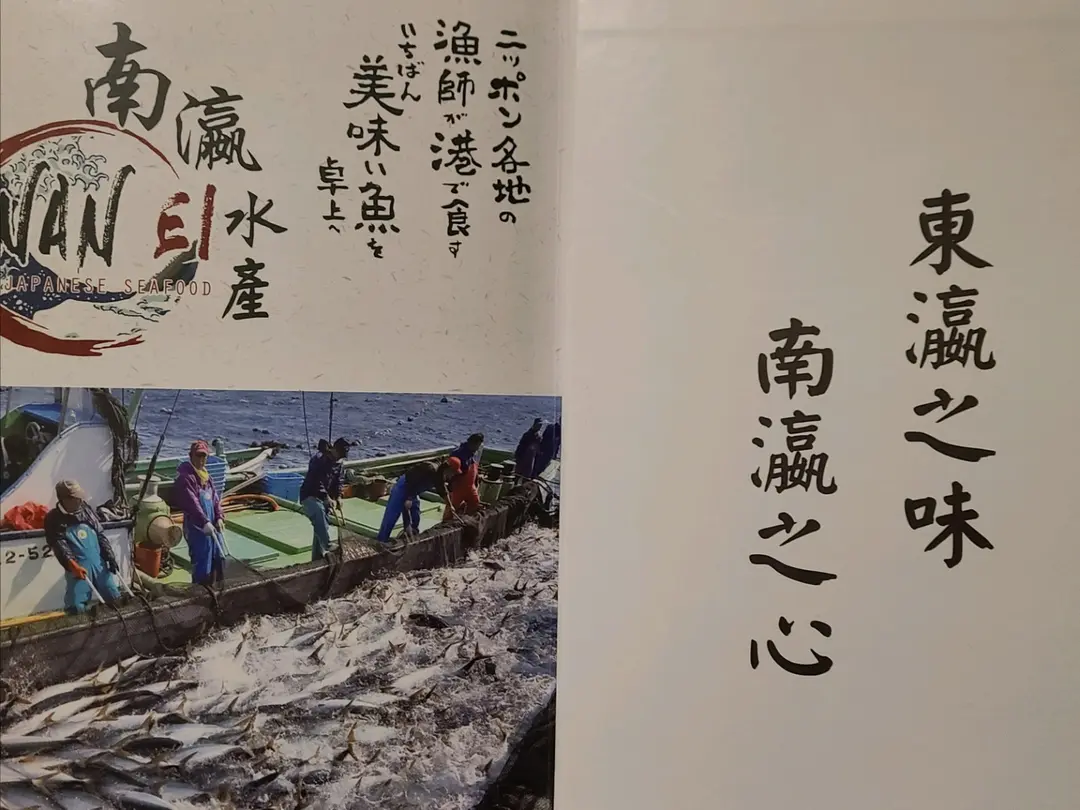 南瀛水產
NAN EI
JAPANESE SEAFOOD
ニッポン各地の
漁師が港で食す
いちばん
美味い魚を
卓上へ
2-52
東瀛之味
南瀛之心